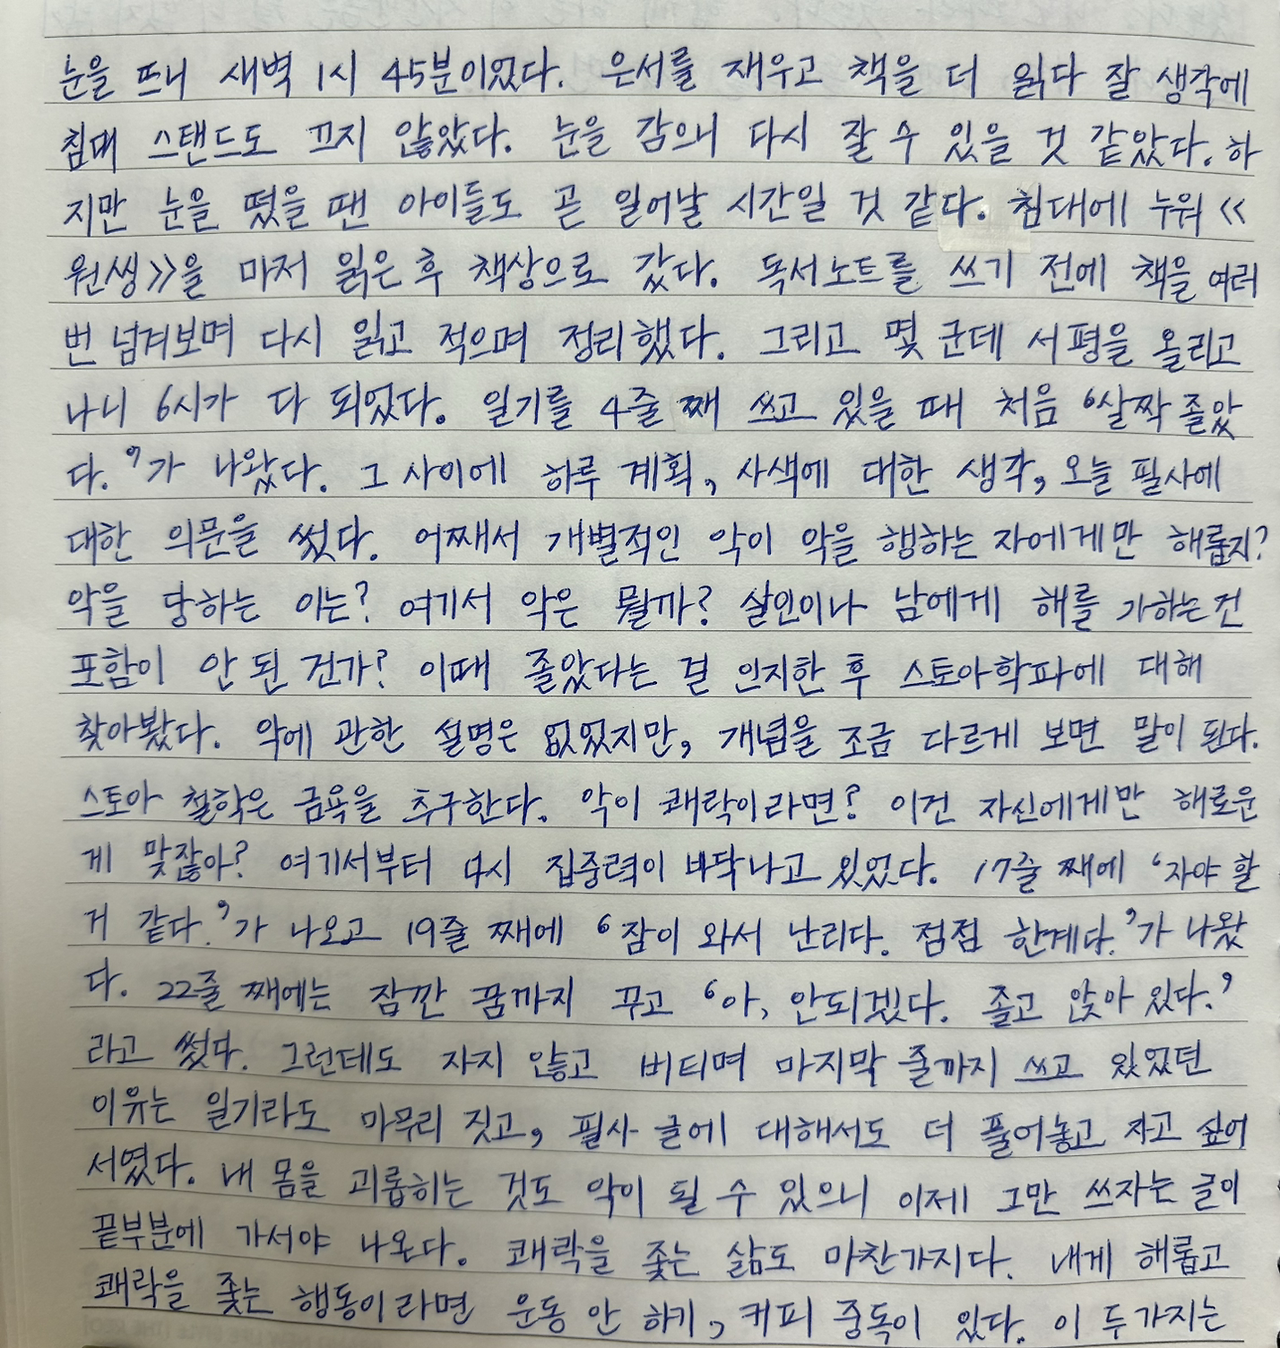 눈을 뜨니 새벽 1시 45분이었다. 은서를 재우고 책을 더 읽다 잘 생각에
침대 스탠드도 끄지 않았다. 눈을 감으니 다시 잘 수 있을 것 같았다. 하
지만 눈을 떴을 땐 아이들도 곧 일어날 시간일 것 같다. 침대에 누워 《
원씽》을 마저 읽은 후 책상으로 갔다. 독서노트를 쓰기 전에 책을 여러
번 넘겨보며 다시 읽고 적으며 정리했다. 그리고 몇 군데 서평을 올리고
나니 6시가 다 되었다. 일기를 4줄 째 쓰고 있을 때 처음 '살짝 졸았
다.'가 나왔다. 그 사이에 하루 계획, 사색에 대한 생각, 오늘 필사에
대한 의문을 썼다. 어째서 개별적인 악이 악을 행하는 자에게만 해롭지?
악을 당하는 이는? 여기서 악은 뭘까? 살인이나 남에게 해를 가하는 건
포함이 안 된 건가? 이때 졸았다는 걸 인지한 후 스토아학파에 대해
찾아봤다. 악에 관한 설명은 없었지만, 개념을 조금 다르게 보면 말이 된다.
스토아 철학은 금욕을 추구한다. 악이 쾌락이라면? 이건 자신에게만 해로운
게 맞잖아? 여기서부터 다시 집중력이 바닥나고 있었다. 17줄 째에 '자야 할
거 같다.'가 나오고 19줄 째에 '잠이 와서 난리다. 점점 한계다.'가 나왔
다. 22줄 째에는 잠깐 꿈까지 꾸고 '아, 안되겠다. 졸고 앉아 있다.'
라고 썼다. 그런데도 자지 않고 버티며 마지막 줄까지 쓰고 있었던
이유는 일기라도 마무리 짓고, 필사 글에 대해서도 더 풀어놓고 자고 싶어
서였다. 내 몸을 괴롭히는 것도 악이 될 수 있으니 이제 그만 쓰자는 글이
끝부분에 가서야 나온다. 쾌락을 좇는 삶도 마찬가지다. 내게 해롭고
쾌락을 좇는 행동이라면 운동 안 하기, 커피 중독이 있다. 이 두 가지는